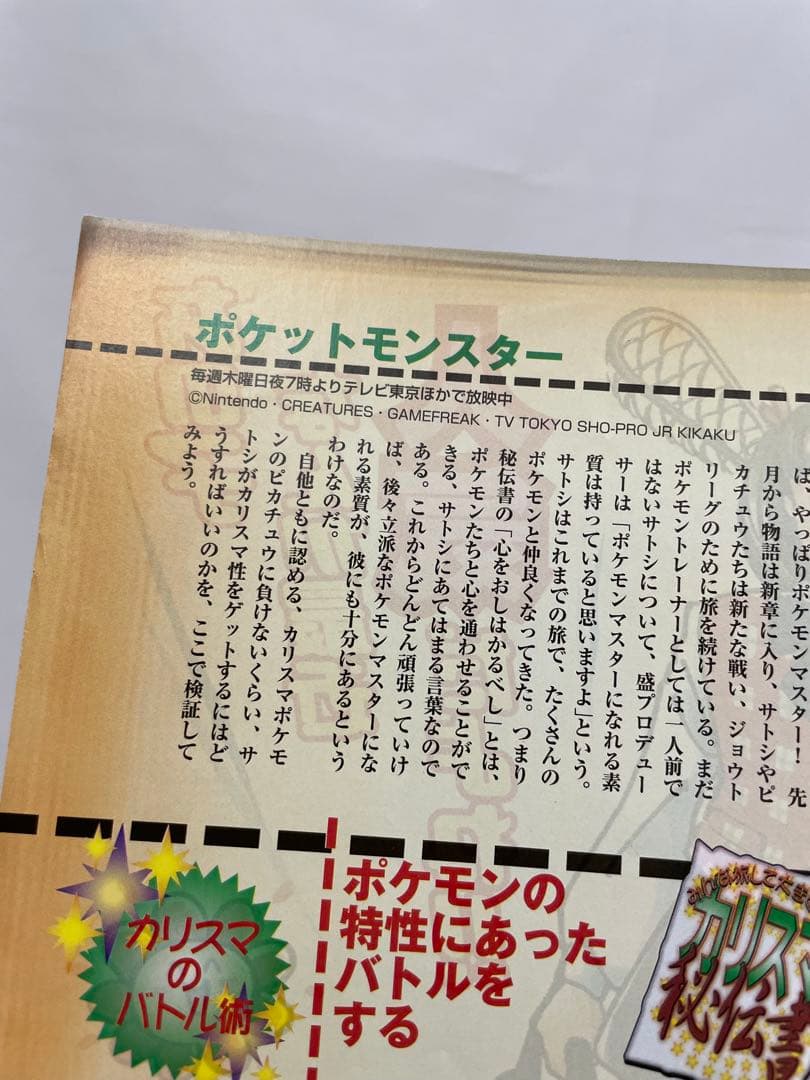 ポケットモンスター
毎週木曜日夜7時よりテレビ東京ほかで放映中
©Nintendo・CREATURES・GAMEFREAK・TV TOKYO SHO-PRO JR KIKAKU
ば、やっぱりポケモンマスター！ 先
月から物語は新章に入り、サトシやピ
カチュウたちは新たな戦い、ジョウト
リーグのために旅を続けている。まだ
ポケモントレーナーとしては一人前で
はないサトシについて、盛プロデュー
サーは「ポケモンマスターになれる素
質は持っていると思いますよ」という。
サトシはこれまでの旅で、たくさんの
ポケモンと仲良くなってきた。つまり
秘伝書の「心をおしはかるべし」とは、
ポケモンたちと心を通わせることがで
きる、サトシにあてはまる言葉なので
ある。これからどんどん頑張っていけ
ば、後々立派なポケモンマスターにな
れる素質が、彼にも十分にあるという
わけなのだ。
自他ともに認める、カリスマポケモ
ンのピカチュウに負けないくらい、サ
トシがカリスマ性をゲットするにはど
うすればいいのかを、ここで検証して
みよう。
カリスマ
の
バトル術
ポケモンの
特性にあった
バトルを
する
カリス
秘伝書